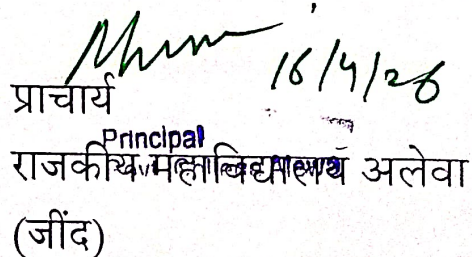 16/4/26
प्राचार्य
Principal
राजकीय महाविद्यालय अलेवा
(जींद)